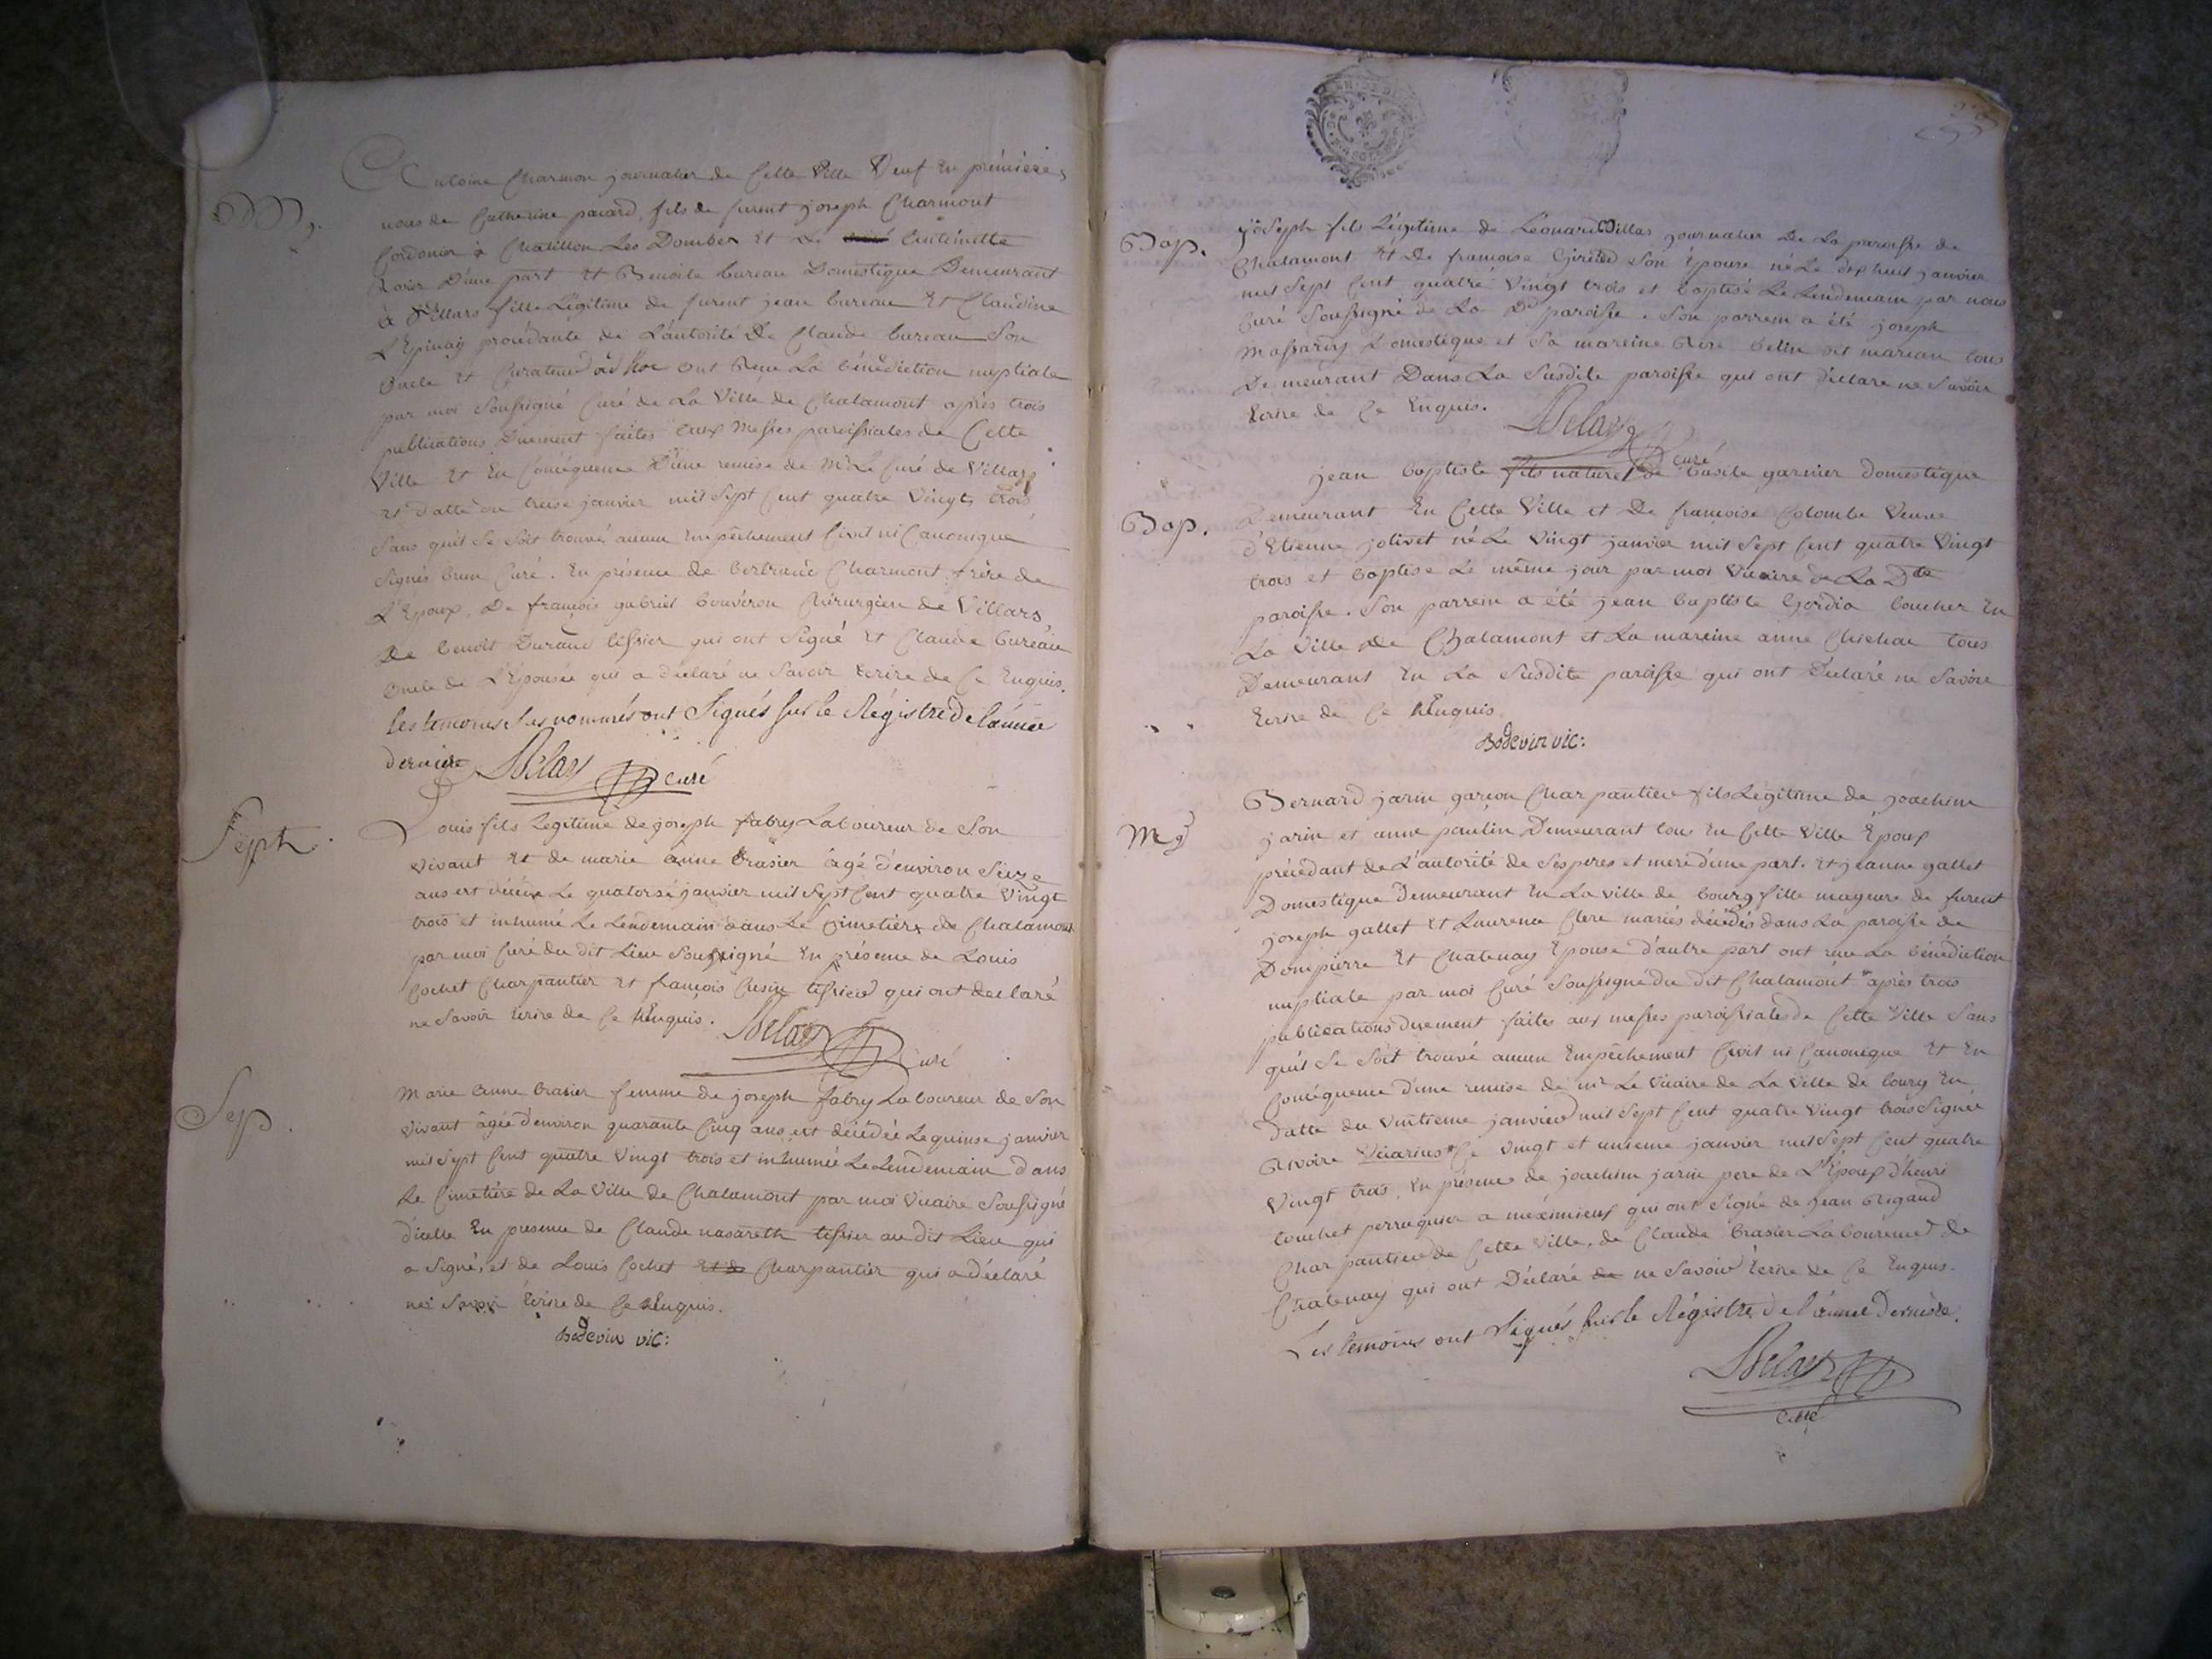 M.
Antoine Charmon journalier de Cette Ville Veuf En premières
noces de Catherine pacard, fils de furent joseph Charmont
Cordonier à Chatillon Les Dombes Et de Antoinette
Roier D'une part Et Benoite bureau Domestique Demeurant
à Villars fille Légitime de furent jean bureau Et Claudine
L'Epinay procédante de L'autorité De Claude bureau Son
Oncle Et Curateur ad hoc Ont Reçu La bénédiction nuptiale
par moi Soussigné Curé de La Ville de Chalamont après trois
publications Duement faites aux Messes paroissiales de Cette
Ville Et En Conséquence D'une remise de Mr Le Curé de Villars
Et Datte du treise janvier mil Sept Cent quatre Vingt trois
Sans qu'il Se Soit trouvé aucun Empêchement Civil ni Canonique
Signés brun Curé. En présence de bertrand Charmont frère de
L'Epoux, De françois gabriel bouveron Chirurgien de Villars,
De benoît Durand tissier qui ont Signé Et Claude bureau
Oncle de L'Epousée qui a déclaré ne Savoir Ecrire de Ce Enquis.
les temoins sus nommés ont Signés sur le Régistre de l'année
derniere Delay curé
Sepult.
Louis fils Légitime de joseph fabry Laboureur de Son
Vivant Et de marie anne brasier âgé d'environ Seize
ans est décédé Le quatorse janvier mil Sept Cent quatre Vingt
trois et inhumé Le Lendemain dans Le Cimetière de Chalamont
par moi Curé du dit Lieu Soussigné En présence de Louis
Cochet Charpantier Et françois Cusin tissier qui ont declaré
ne Savoir Ecrire de Ce Enquis. Delay Curé
Sep.
Marie anne brasier femme de joseph fabry Laboureur de Son
Vivant âgée d'environ quarante Cinq ans est décédée Le quinse janvier
mil Sept Cent quatre Vingt trois et inhumée Le Lendemain dans
Le Cimetière de La Ville de Chalamont par moi Vicaire Soussigné
d'icelle En presence de Claude nasareth tissier au dit Lieu qui
a Signé, et de Louis Cochet Et de Charpantier qui a déclaré
ne Savoir Ecrire de Ce Enquis.
Bodevin vic:
Bap.
joseph fils Légitime de Léonard Villas journalier De La paroisse de
Chalamont Et De françoise Girard Son Epouse né Le dix huit janvier
mil Sept Cent quatre Vingt trois et baptisé Le Lendemain par nous
Curé Soussigné de La De paroisse. Son parrein a été joseph
Domestique et Sa mareine belin dit marian tous
Demeurant Dans La Susdite paroisse qui ont déclaré ne Savoir
Ecrire de Ce Enquis. Delay Curé
Bap.
jean baptiste fils naturel de basile garnier domestique
Demeurant En Cette Ville et De françoise Colombe Veuve
d'Etienne jolivet né Le Vingt janvier mil Sept Cent quatre Vingt
trois et baptisé Le même jour par moi Vicaire de La Dte
paroisse. Son parrein a été jean baptiste Gordia boucher En
La Ville de Chalamont et La mareine anne tous
Demeurant En La Susdite paroisse qui ont Déclaré ne Savoir
Ecrire de Ce Enquis
Bodevin vic:
M
Bernard jarin garçon Charpantier fils Légitime de joachim
jarin et anne paulin Demeurant tous En Cette Ville Epoux
précédant de L'autorité de Ses peres et mere d'une part. Et jeanne gallet
Domestique Demeurant En La Ville de bourg fille mageure de furent
joseph gallet Et Laurence Clere mariés décédés dans La paroisse de
Dompierre Et Chatenay Epouse d'autre part ont reçu La bénédiction
nuptiale par moi Curé Soussigné du dit Chalamont après trois
publications duement faites aux messes paroissiales de Cette Ville Sans
qu'il Se Soit trouvé aucun Empêchement Civil ni Canonique Et En
Conséquence d'une remise de mr Le Vicaire de La Ville de bourg En
datte du Vintieme janvier mil Sept Cent quatre Vingt trois Signée
Vicarius Ce Vingt et unieme janvier mil Sept Cent quatre
Vingt trois, En présence de joachim jarin pere de L'Epoux d'henri
perruquier a meximieux qui ont Signé de jean Rigaud
Charpantier de Cette Ville, de Claude brasier Laboureur de
Chatenay qui ont Déclaré de ne Savoir Ecrire de Ce Enquis.
Les temoins ont signés sur le Régistre de l'année derniere.
Delay
Curé